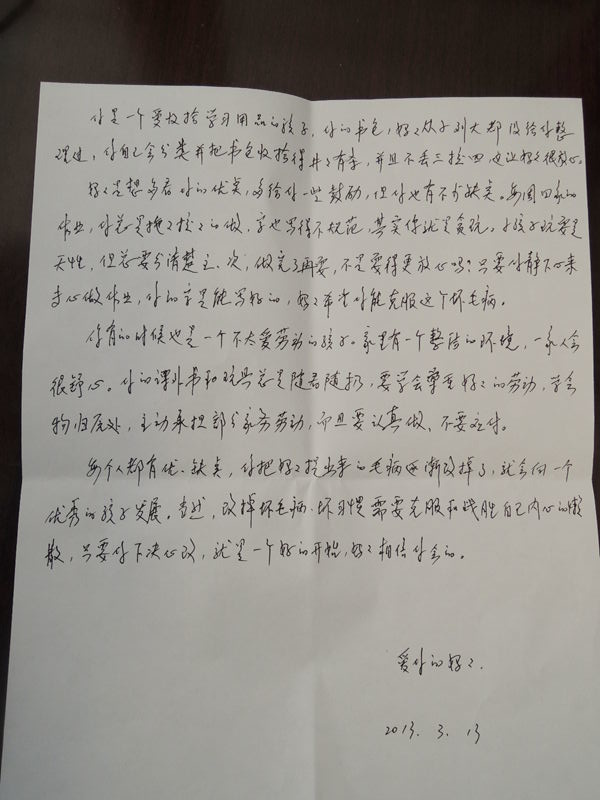 你是一个爱收拾学习用品的孩子，你的书包，妈妈从小到大都没给你整
理过，你自己会分类并把书包收拾得井井有条，并且不丢三拉四，这让妈妈很放心。
妈妈老想多看你的优点，多给你一些鼓励，但你也有不少缺点。每周回家的
作业，你总是拖拖拉拉的做，字也写得不规范，其实你就是贪玩。小孩子玩耍是
天性，但总要分清楚主、次，做完了再耍，不是耍得更放心吗？只要你静下心来
专心做作业，你的字是能写好的，妈妈希望你能克服这个坏毛病。
你有的时候也是一个不太爱劳动的孩子。家里有一个整洁的环境，一家人会
很舒心。你的课外书和玩具总是随看随扔，要学会尊重妈妈的劳动，学会
物归原处，主动承担部分家务劳动，而且要认真做，不要应付。
每个人都有优、缺点，你把妈妈提出来的毛病逐渐改掉了，就会向一个
优秀的孩子发展。当然，改掉坏毛病、坏习惯需要克服和战胜自己内心的懒
散，只要你下决心改，就是一个好的开始，妈妈相信你会的。
爱你的妈妈.
2013. 3. 13